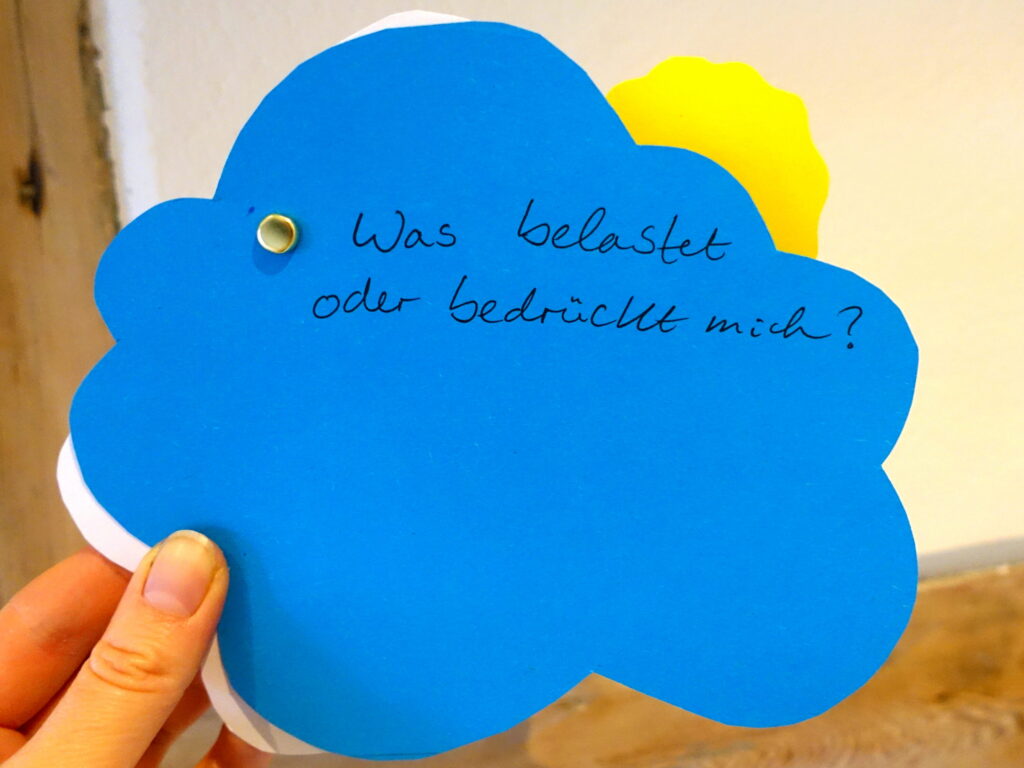 Was belastet
oder bedrückt mich?